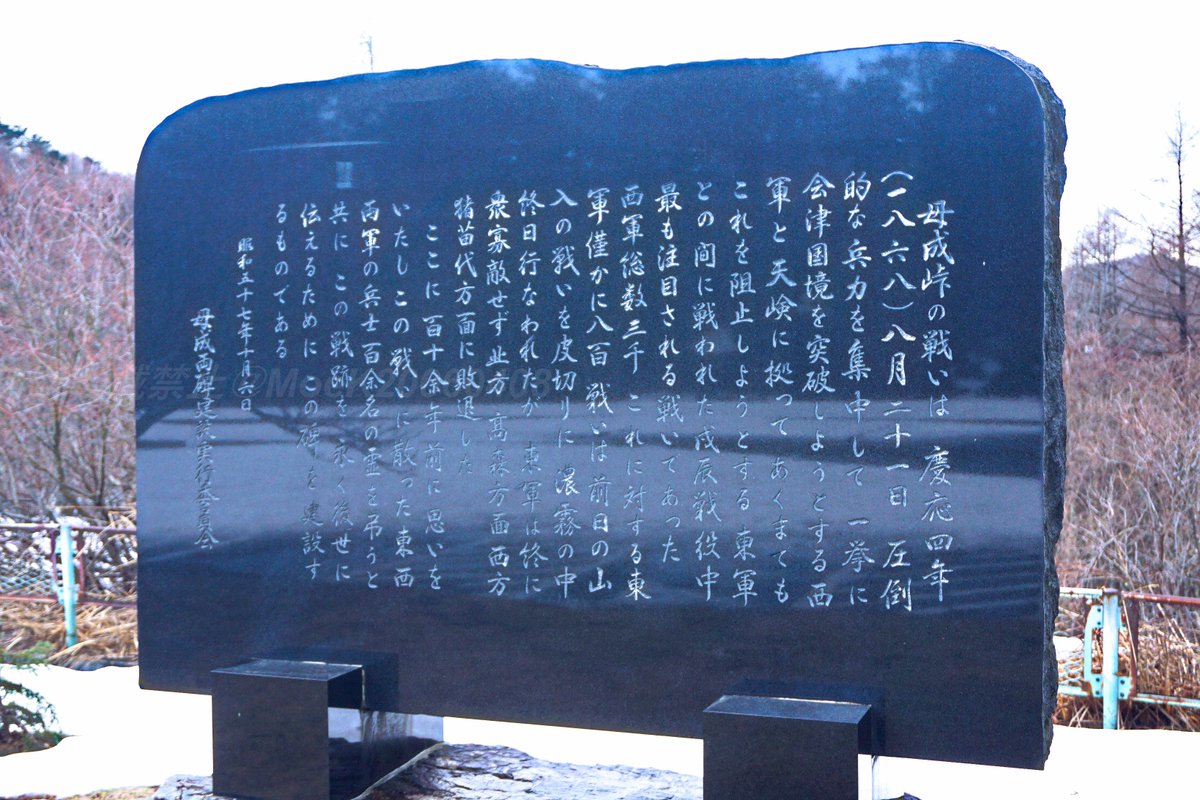 母成峠の戦いは 慶応四年
(一八六八)八月二十一日 圧倒
的な兵力を集中して 一挙に
会津国境を突破しようとする西
軍と天嶮に拠ってあくまでも
これを阻止しようとする東軍
との間に戦われた戊辰戦役中
最も注目される戦いであった
西軍総数三千 これに対する東
軍僅かに八百 戦いは前日の山
入の戦いを皮切りに 濃霧の中
終日行なわれたが 東軍は終に
衆寡敵せず 北方 高森方面西方
猪苗代方面に敗退した
ここに百十余年前に思いを
いたし この戦いに散った東西
両軍の兵士百余名の霊を弔うと
共に この戦跡を永く後世に
伝えるために この碑を建設す
るものである
昭和五十七年十月六日
母成両碑建設実行委員会